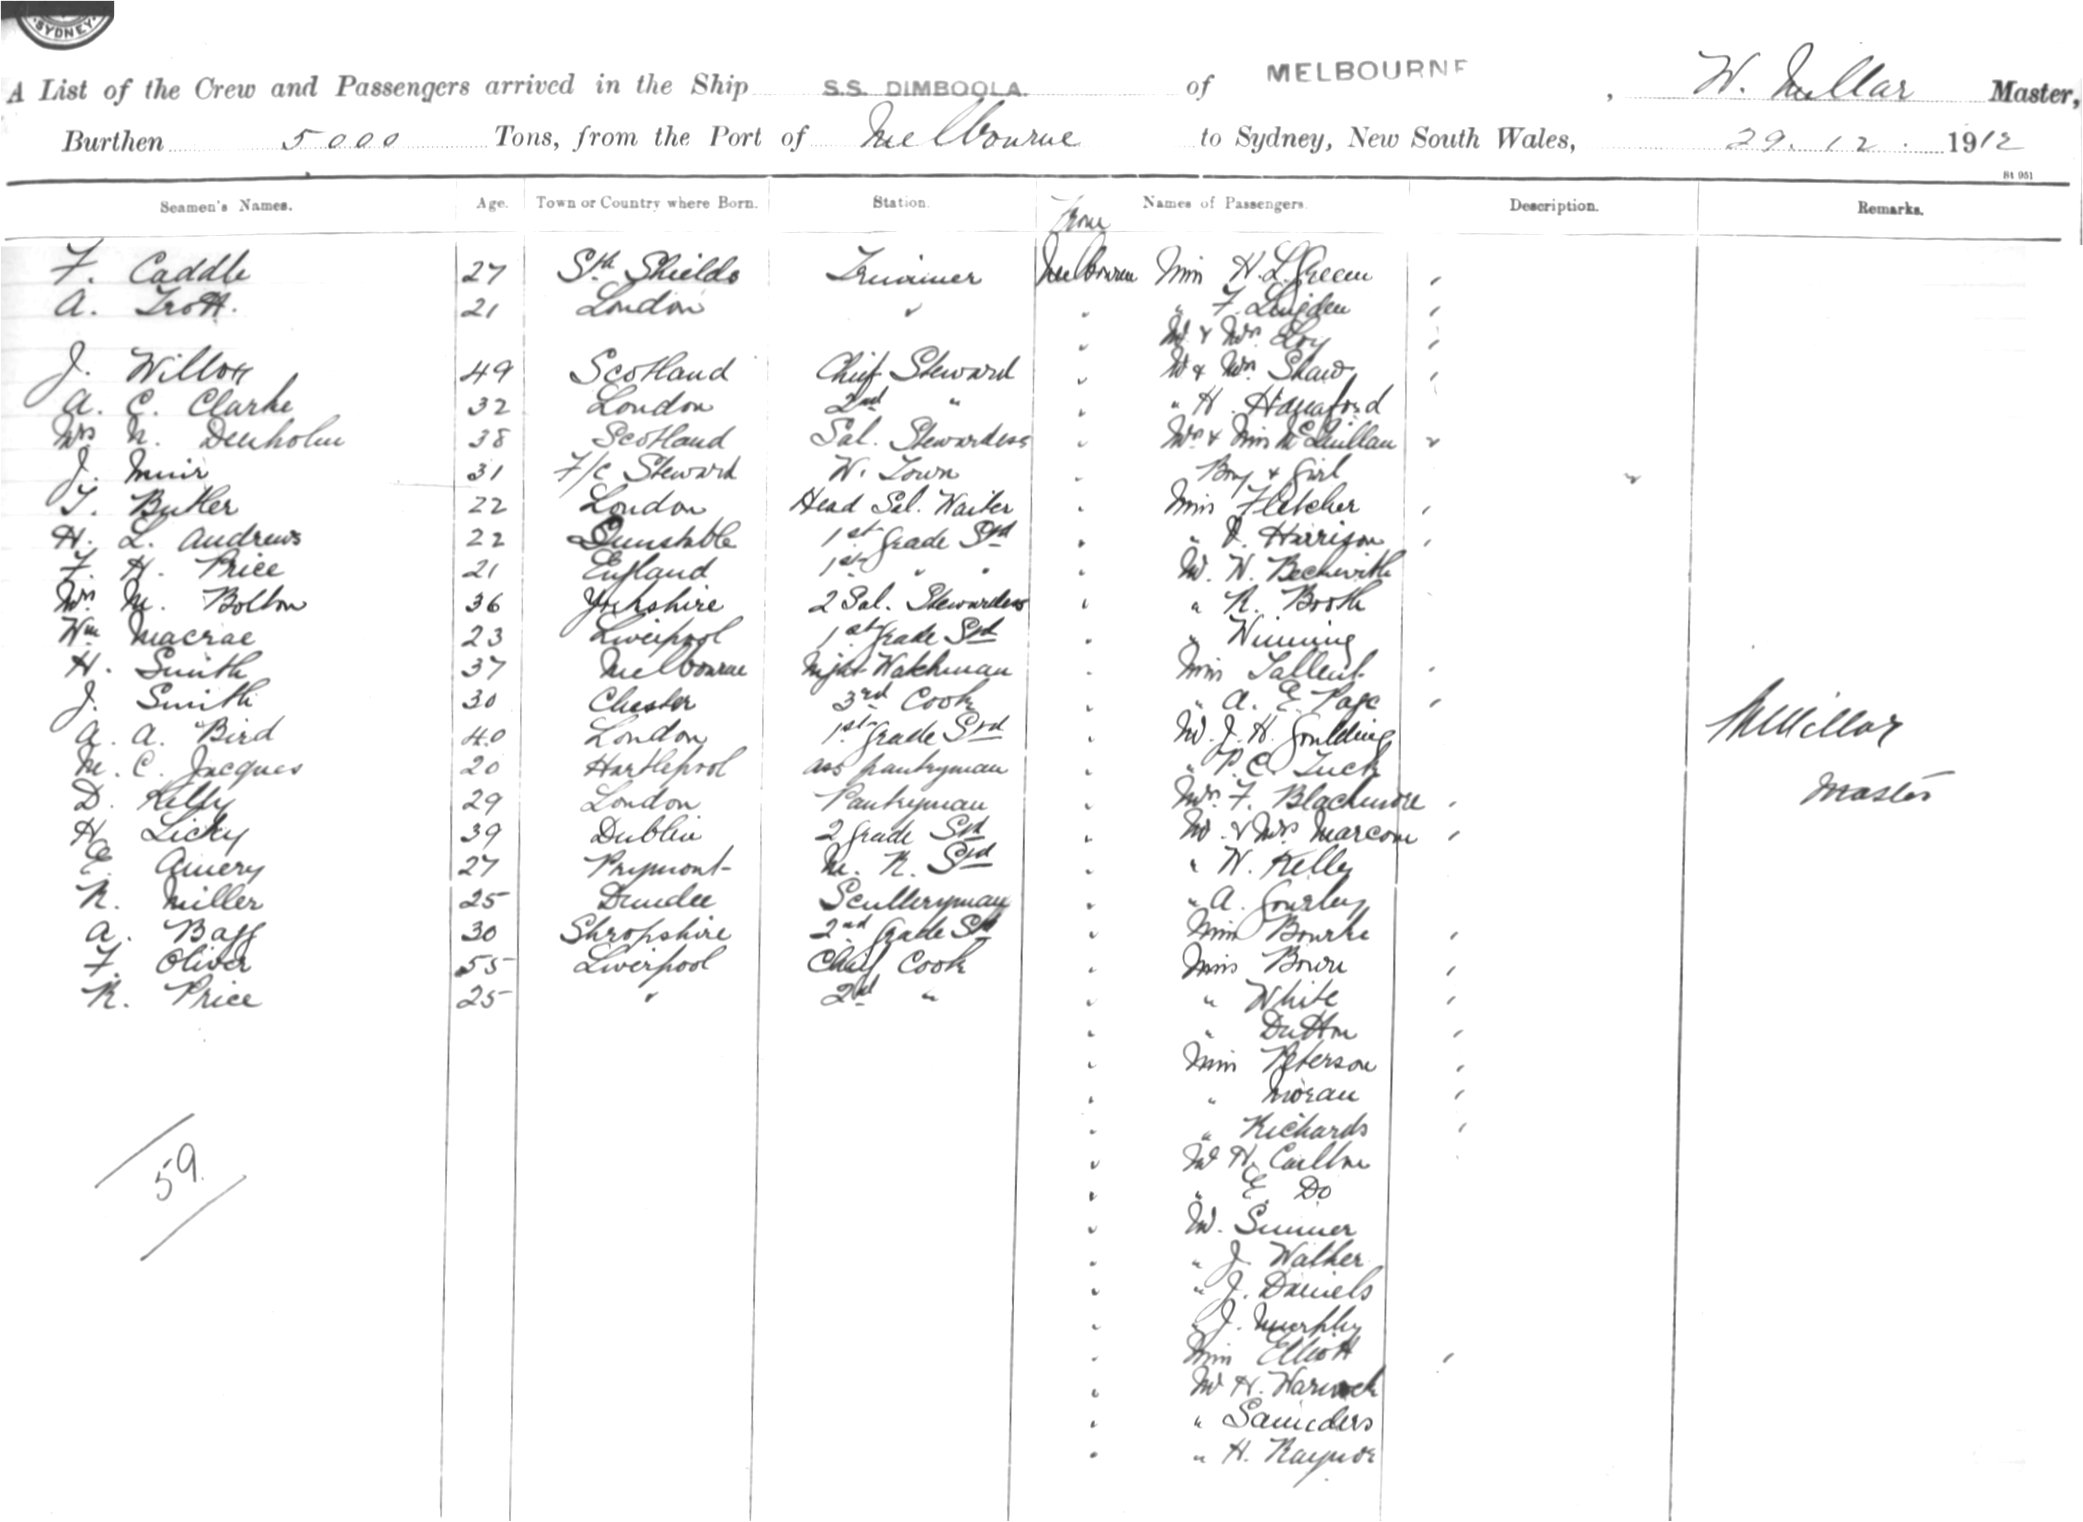 SYDNEY
A List of the Crew and Passengers arrived in the Ship S.S. DIMBOOLA. of MELBOURNE, W. Millar Master,
Burthen 5000 Tons, from the Port of Melbourne to Sydney, New South Wales, 29.12. 1912
St 951
Seamen's Names. Age. Town or Country where Born. Station. Names of Passengers. Description. Remarks.
From
F. Caddle 27 Sth Shields Trimmer Melbourne Miss H. L. Green
A. Trott. 21 London " " " F.
" Mr & Mrs
J. 49 Scotland Chief Steward " Mr & Mrs Shaw
A. C. Clarke 32 London 2nd " " " H. Hannaford
Mrs N. Denholm 38 Scotland Sal. Stewardess " Mrs & Miss McQuillan
J. Muir 31 F/C Steward W. Town " Boy & Girl
T. Butler 22 London Head Sal. Waiter " Miss Fletcher
H. L. Andrews 22 Dunstable 1st Grade Std " " Harrison
F. H. Price 21 England 1st " " " Mr. W. Beckwith
Mrs M. Bolton 36 Yorkshire 2 Sal. Stewardess " " R. Booth
Wm Macrae 23 Liverpool 1st Grade Std " " Winning
H. Smith 37 Melbourne Night Watchman " Miss Tallent
J. Smith 30 Chester 3rd Cook " " A. E. Page
A. A. Bird 40 London 1st Grade Std " Mr. J. H. Goulding
M. C. Jacques 20 Hartlepool ass pantryman " " P. C. Tuck
D. Kelly 29 London Pantryman " Mrs. F. Blackmore
H. Licky 39 Dublin 2 Grade Std " Mr. & Mrs Marcom
E. Amery 27 Prymont M. R. Std " " W. Kelly
R. Miller 25 Dundee Sculleryman " " A. Gourley
A. Bagg 30 Shropshire 2nd Grade Std " Miss Bourke
F. Oliver 55 Liverpool Chief Cook " Miss
R. Price 25 " 2nd " " " White
" " Dutton
" Miss Peterson
" " Moran
" " Richards
" Mr H. Carlton
" " E. Do
" Mr. Sumner
" " J. Walker
" " J. Daniels
" " J. Murphy
" Miss Elliott
" Mr H. Warnock
" " Saunders
" " H. Raynor
W Millar
Master
59.